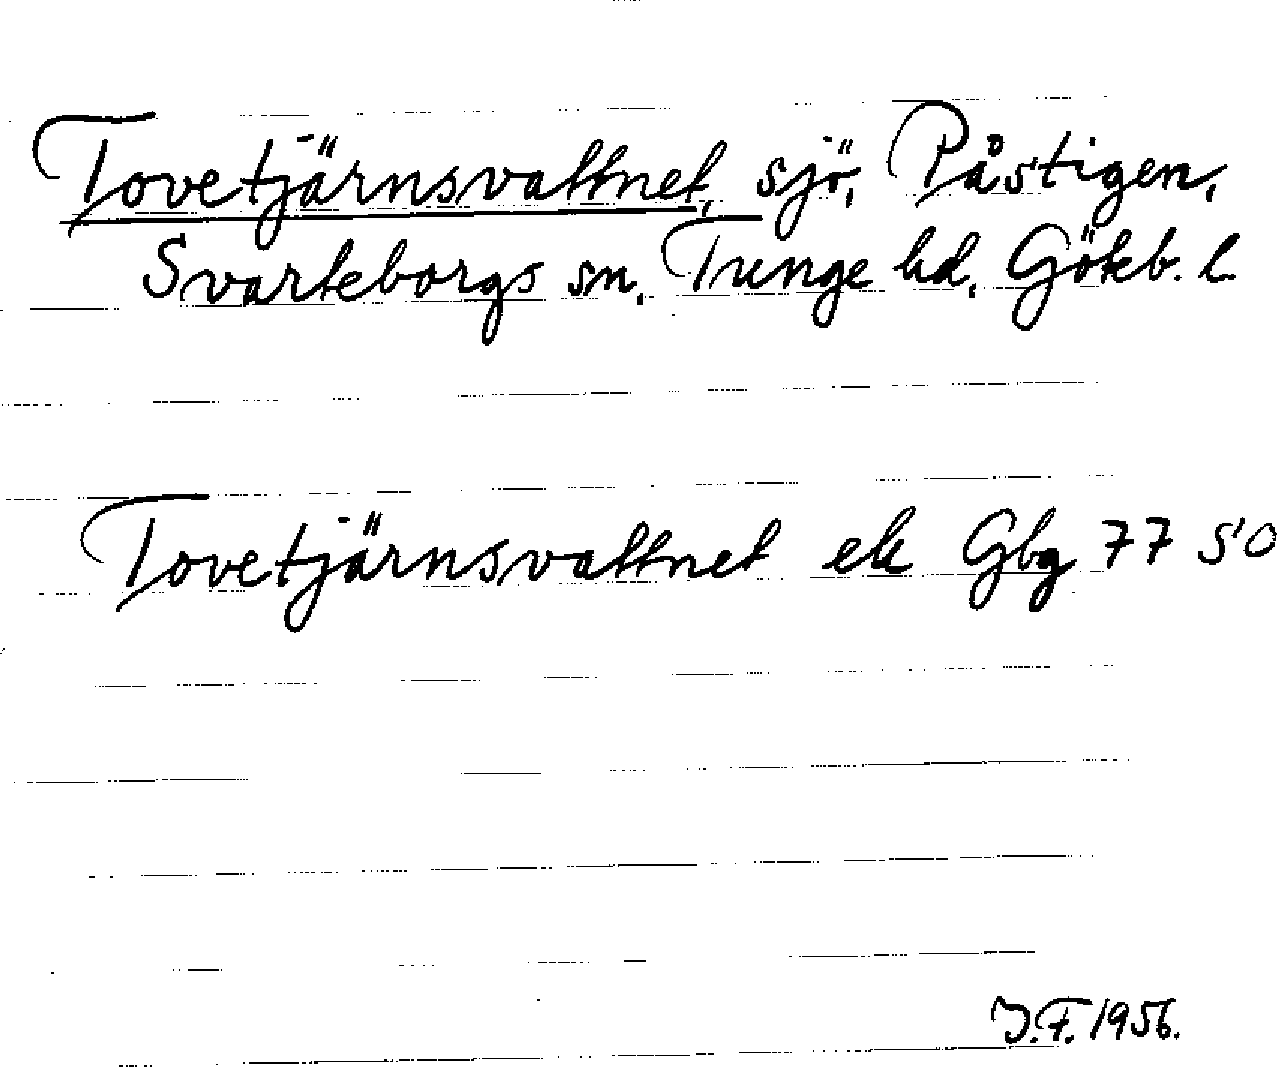 Tovetjärnsvattnet, sjö, Påstigen,
Svarteborgs sn. Tunge hd. Gökb. l.
Tovetjärnsvattnet ek Gbg 77 SO
J.F. 1956.